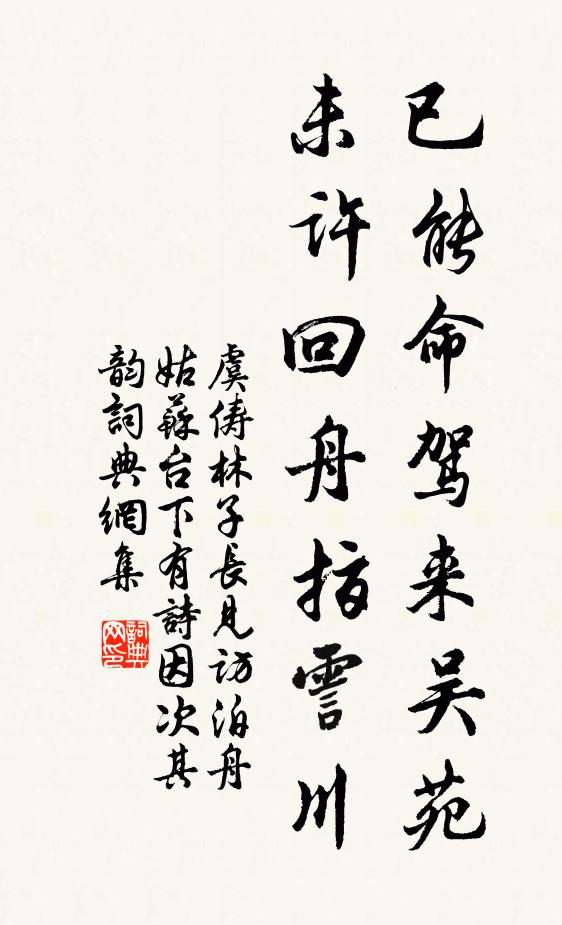 已能命驾来吴苑
未许回舟指霅川
虞俦林子長見访泊舟
姑蘇台下有詩因次其
韵詞典網集
詞典网印